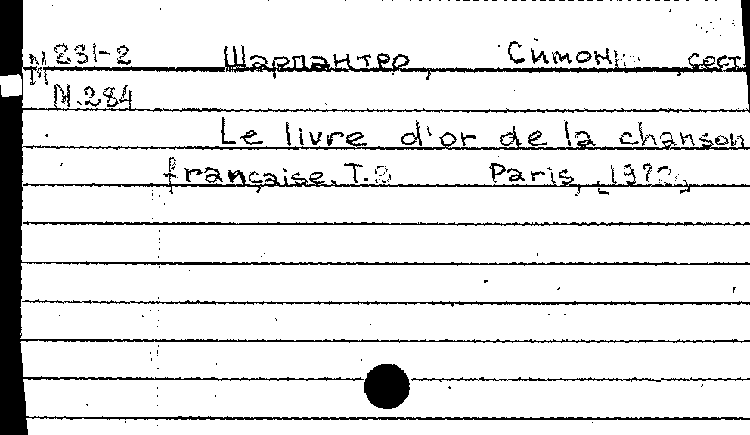 М 231-2 Шарпантро, Симон, сост.
М.284
Le livre d'or de la chanson
française. T. Paris,